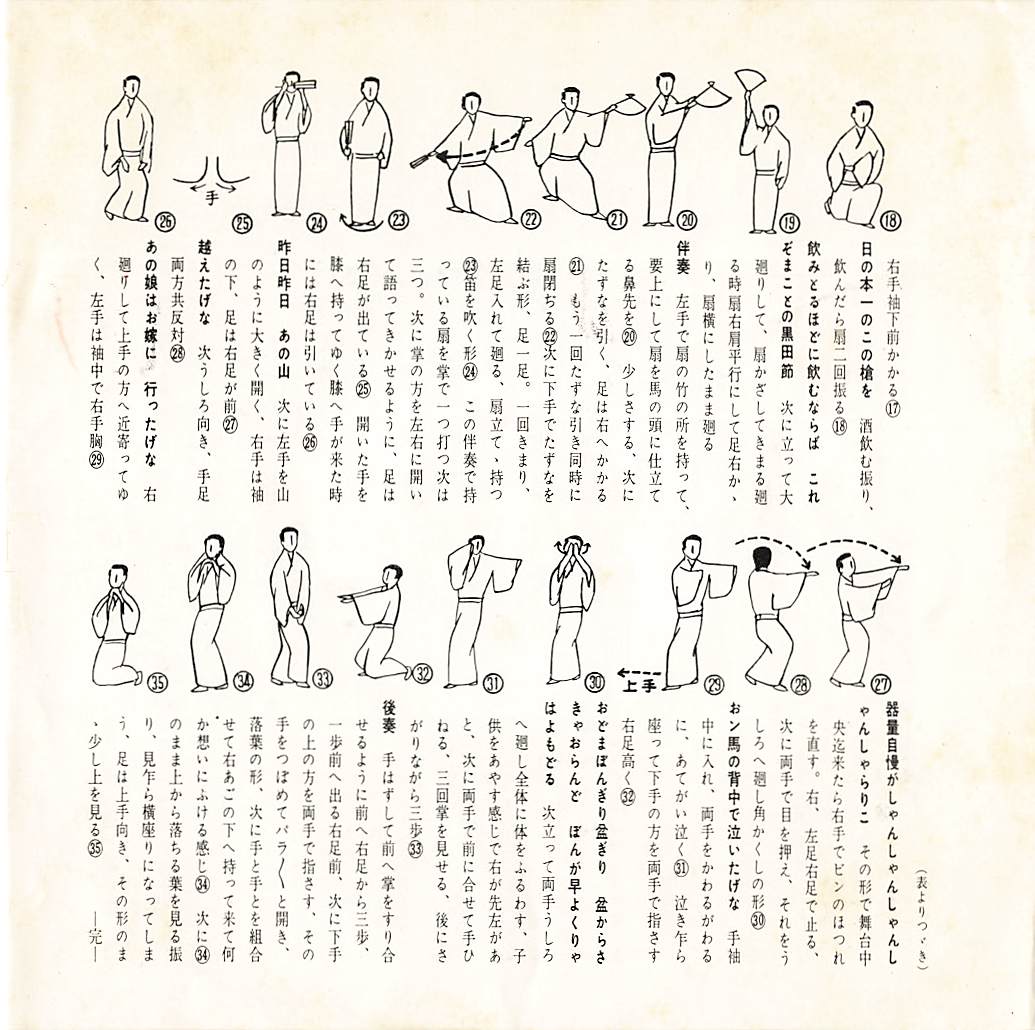 ⑱
⑲
⑳
㉑
㉒
㉓
㉔
㉕
手
㉖
右手袖下前かかる⑰
日の本一のこの槍を　酒飲む振り、
飲んだら扇二回振る⑱
飲みとるほどに飲むならば　これ
ぞまことの黒田節　次に立って大
廻りして、扇かざしてきまる廻
る時扇右肩平行にして足右か、
り、扇横にしたまま廻る
伴奏　左手で扇の竹の所を持って、
要上にして扇を馬の頭に仕立て
る鼻先を⑳　少しさする、次に
たずなを引く、足は右へかかる
㉑　もう一回たずな引き同時に
扇閉ぢる㉒次に下手でたずなを
結ぶ形、足一足。一回きまり、
左足入れて廻る、扇立てゝ持つ
㉓笛を吹く形㉔　この伴奏で持
っている扇を掌で一つ打つ次は
三つ。次に掌の方を左右に開い
て語ってきかせるように、足は
右足が出ている㉕　開いた手を
膝へ持ってゆく膝へ手が来た時
には右足は引いている㉖
昨日昨日　あの山　次に左手を山
のように大きく開く、右手は袖
の下、足は右足が前㉗
越えたげな　次うしろ向き、手足
両方共反対㉘
あの娘はお嫁に　行ったげな　右
廻りして上手の方へ近寄ってゆ
く、左手は袖中で右手胸㉙
㉗
㉘
㉙
上手
㉚
㉛
㉜
㉝
㉞
㉟
（表よりつゞき）
器量自慢がしゃんしゃんしゃんし
ゃんしゃらりこ　その形で舞台中
央迄来たら右手でビンのほつれ
を直す。右、左足右足で止る、
次に両手で目を押え、それをう
しろへ廻し角かくしの形㉚
おン馬の背中で泣いたげな　手袖
中に入れ、両手をかわるがわる
に、あてがい泣く㉛　泣き乍ら
座って下手の方を両手で指さす
右足高く㉜
おどまぼんぎり盆ぎり　盆からさ
きゃおらんど　ぼんが早よくりゃ
はよもどる　次立って両手うしろ
へ廻し全体に体をふるわす、子
供をあやす感じで右が先左があ
と、次に両手で前に合せて手ひ
ねる、三回掌を見せる、後にさ
がりながら三歩㉝
後奏　手はずして前へ掌をすり合
せるように前へ右足から三歩、
一歩前へ出る右足前、次に下手
の上の方を両手で指さす、その
手をつぼめてバラ〱と開き、
落葉の形、次に手と手とを組合
せて右あごの下へ持って来て何
か想いにふける感じ㉞　次に㉞
のまま上から落ちる葉を見る振
り、見乍ら横座りになってしま
う、足は上手向き、その形のま
ゝ少し上を見る㉟　―完―